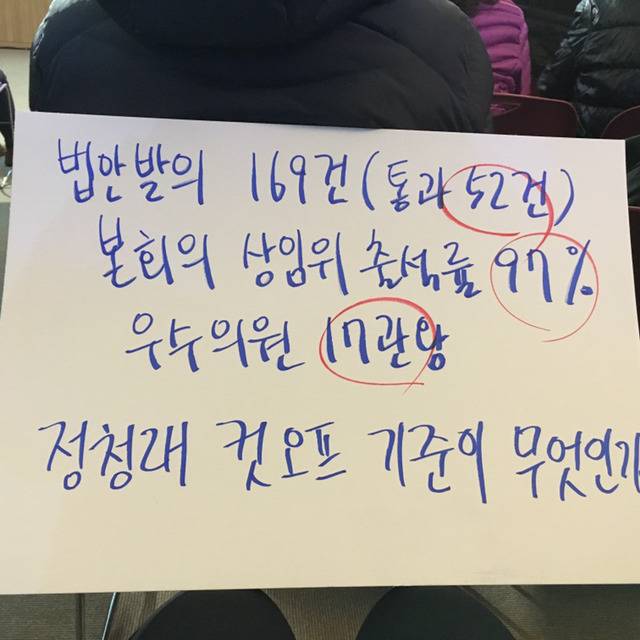 법안발의 169건(통과 52건)
본회의 상임위 출석률 97%
우수의원 17관왕
정청래 컷오프 기준이 무엇인가